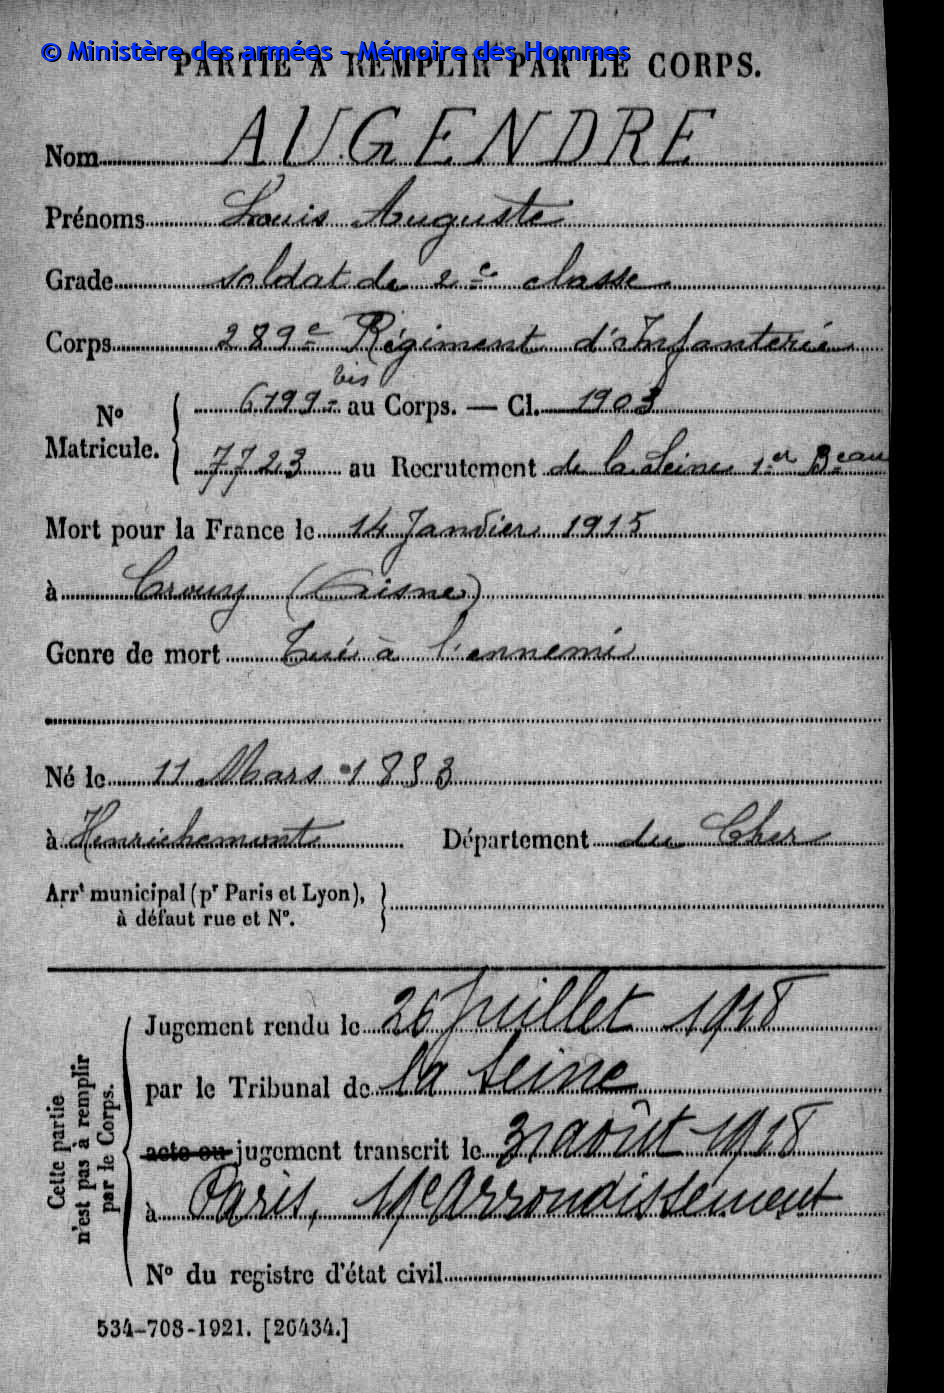 © Ministère des armées - Mémoire des Hommes
PARTIE À REMPLIR PAR LE CORPS.
Nom AUGENDRE
Prénoms Louis Auguste
Grade soldat de 2e classe
Corps 289e Régiment d'Infanterie
bis
6199 au Corps. — Cl. 1903
N° Matricule.
7723 au Recrutement de la Seine 1er Beau
Mort pour la France le 14 Janvier 1915
à Crouy (Aisne)
Genre de mort Tué à l'ennemi
Né le 11 Mars 1883
à Henrichemont Département du Cher
Arrt municipal (pr Paris et Lyon),
à défaut rue et N°.
Jugement rendu le 26 Juillet 1918
par le Tribunal de la Seine
acte ou jugement transcrit le 31 août 1918
à Paris, 11e arrondissement
N° du registre d'état civil
Cette partie
n'est pas à remplir
par le Corps.
534-708-1921. [26434.]